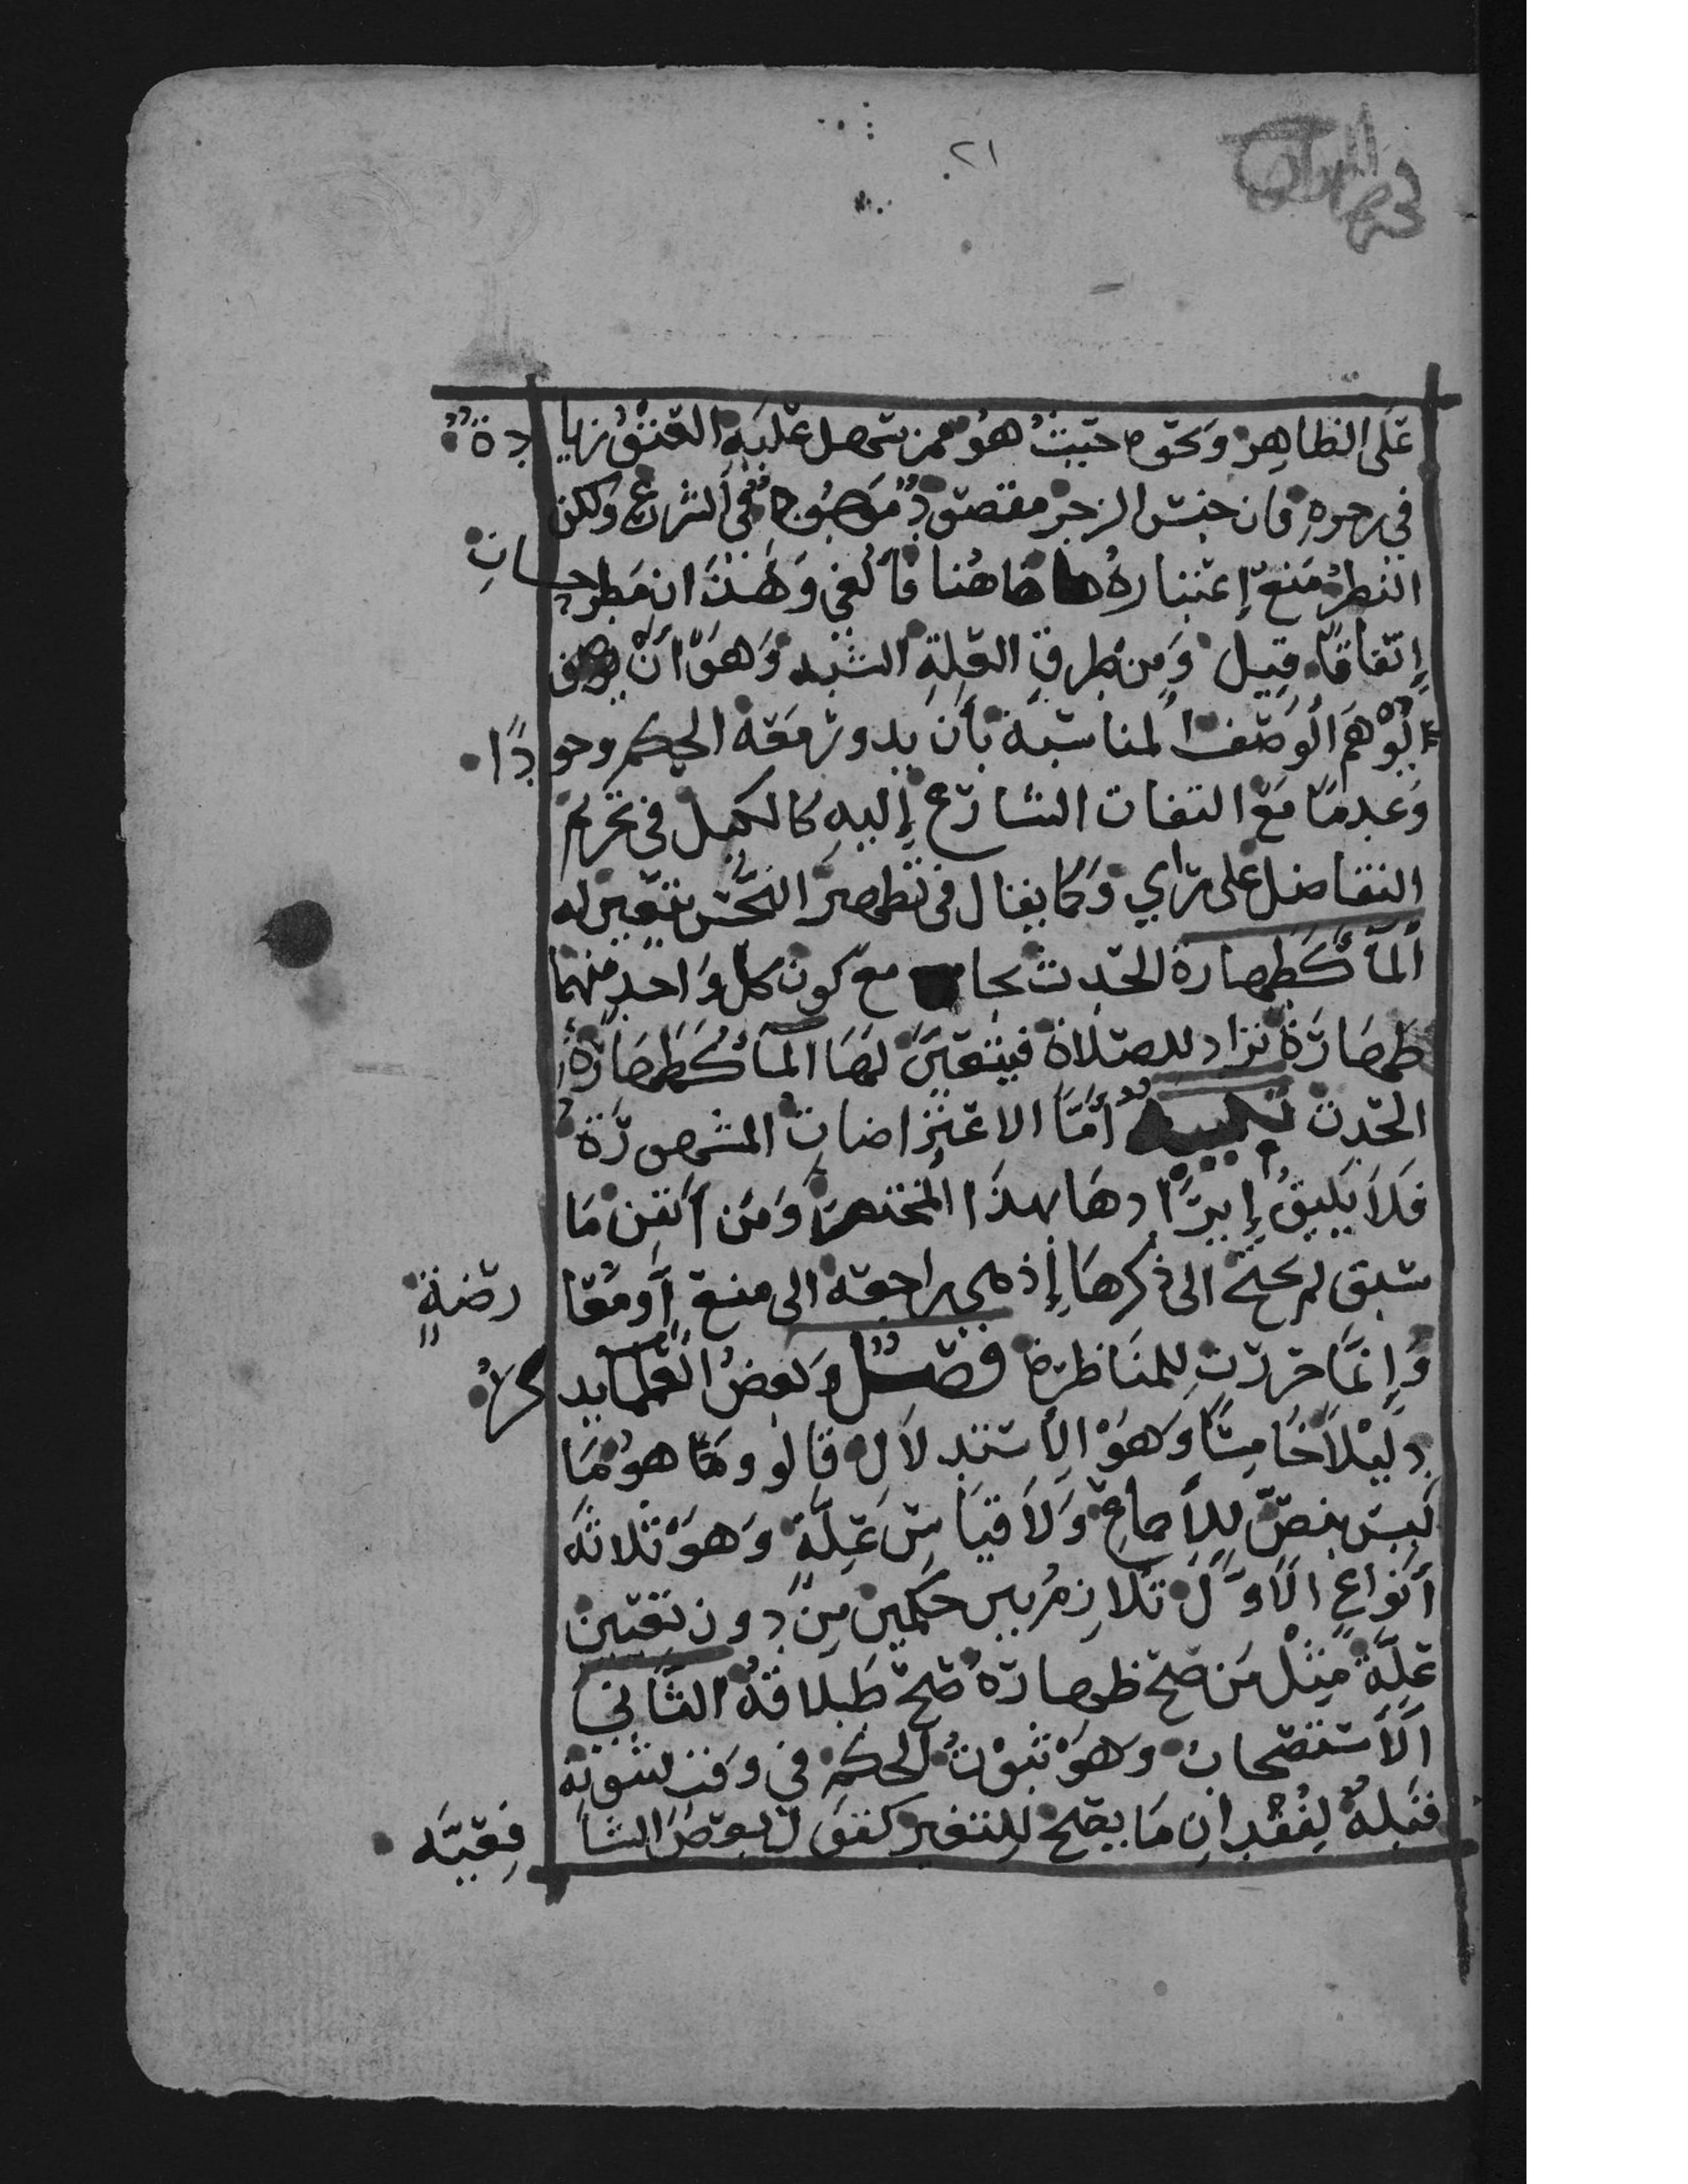 ٢١
عَلى المظاهِر وَنحوه حيث هُو ممن يسهل عليه العتق زيادة
في زجره فان جنس الزجر مقصود في الشرع ولكن
النظر منع إعتباره هاهنا فألغي وَهذان مطرحان
إتفاقًا قيل وَمن طرق العلة الشبه وَهو أنْ
يُوهم الوصف المناسبة بأن يدور معه الحكم وجودًا
وَعدمًا مع التفات الشارع إليه كالكيل في تحريم
التفاضل على رأي وَكما يقال في تطهير النجس يتعين له
المآء كطهارة الحدث بجامع كون كل وَاحد منهما
طهارة تراد للصلاة فيتعين لها المآء كطهارة
الحدث تنبيه أمَّا الاعتراضات المشهورة
فلا يليق إيرادها بهذا المختصر وَمن أتقن مَا
سبق لم يحتج الى ذكرها إذ هي راجعة الى منع أو معارضةٍ
وَإنمَّا حررت للمناظرة فصل وَبعضُ العلما يذكر
دليلاً خامسًا وَهو الأستدلال قالو وهو مَا
ليس بنصّ للأجماع وَلا قياس علةٍ وَهو ثلاثة
أنواع الأوَّل تلازم بين حكمين من دون تعين
علةٍ مثل من صح ظهاره صح طلاقه الثاني
الأستصحاب وَهو ثبوت الحكم في وقت لثبوته
قبله لفقدان مَا يصلح للتغير كقول بعض الشافعيَّه